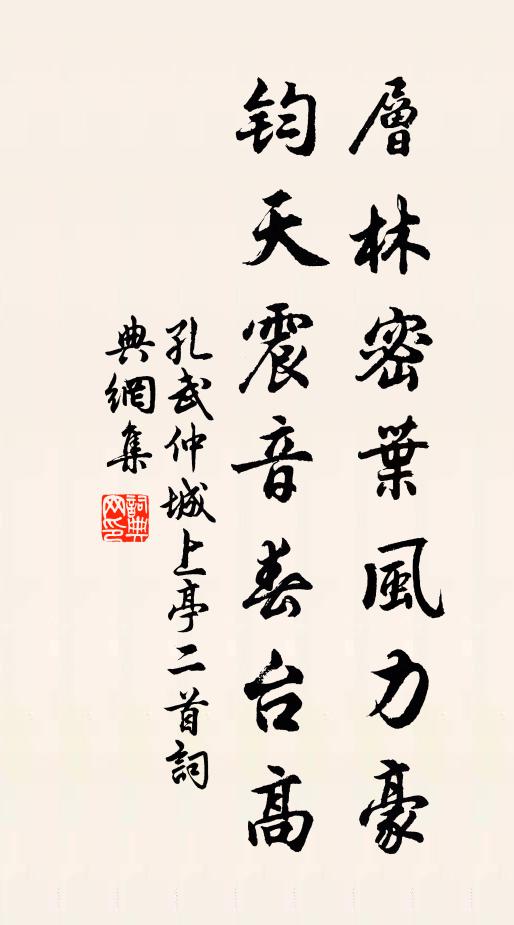 層林密葉風力豪
鈞天震音春台高
孔武仲城上亭二首詞
典網集
詞典
网印